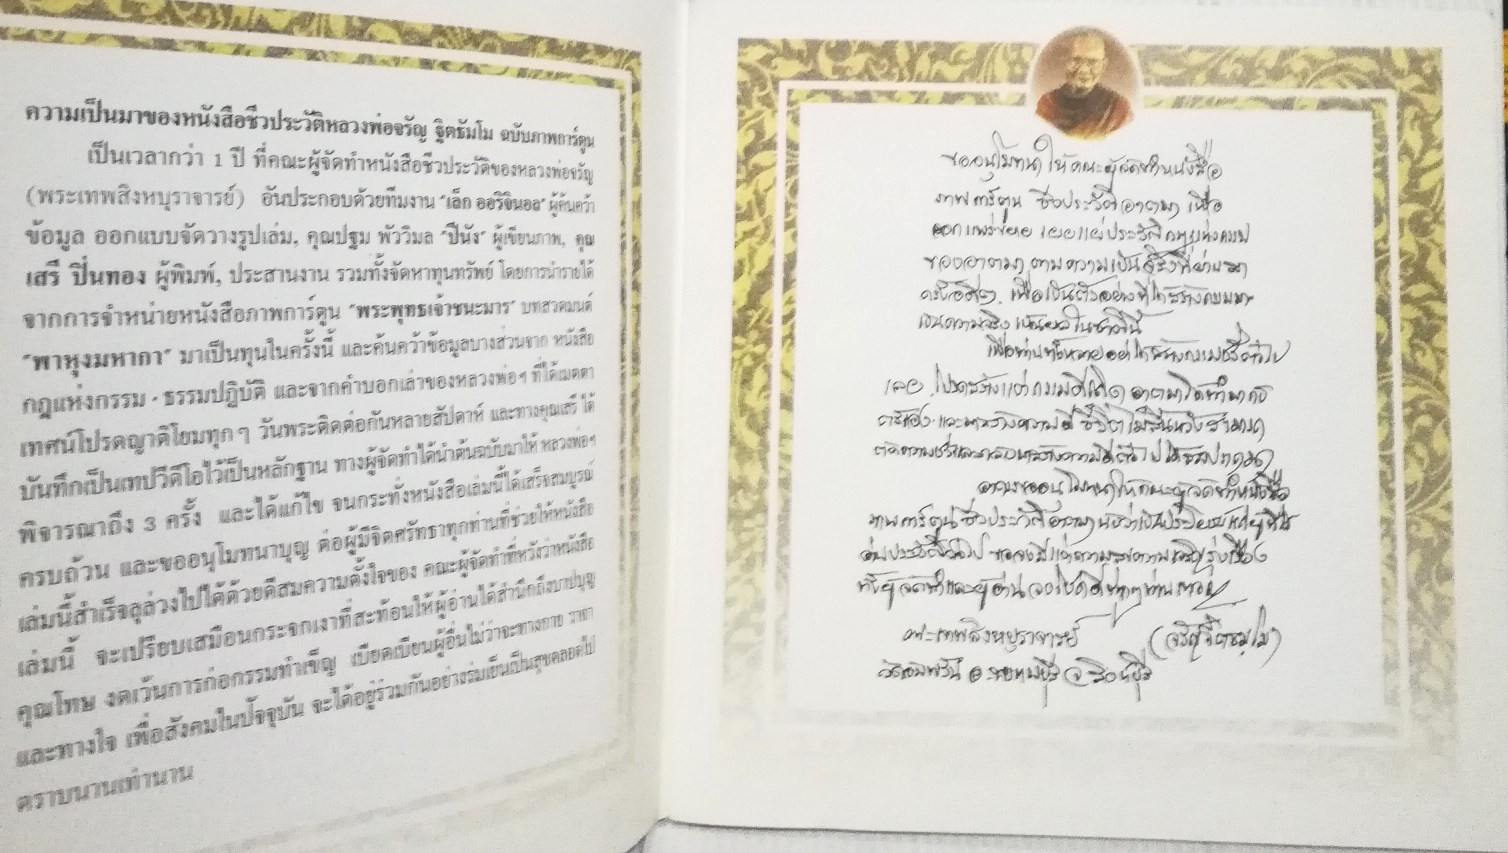 ความเป็นมาของหนังสือชีวประวัติหลวงพ่อจรัญ ฐิตธัมโม ฉบับภาพการ์ตูน
เป็นเวลากว่า 1 ปี ที่คณะผู้จัดทำหนังสือชีวประวัติของหลวงพ่อจรัญ
(พระเทพสิงหบุราจารย์) อันประกอบด้วยทีมงาน "เล็ก ออริจินอล" ผู้ค้นคว้า
ข้อมูล ออกแบบจัดวางรูปเล่ม, คุณปฐม พัววิมล "ปีนัง" ผู้เขียนภาพ, คุณ
เสรี ปิ่นทอง ผู้พิมพ์, ประสานงาน รวมทั้งจัดหาทุนทรัพย์ โดยการนำรายได้
จากการจำหน่ายหนังสือภาพการ์ตูน "พระพุทธเจ้าชนะมาร" บทสวดมนต์
"พาหุงมหากา" มาเป็นทุนในครั้งนี้ และค้นคว้าข้อมูลบางส่วนจาก หนังสือ
กฎแห่งกรรม - ธรรมปฏิบัติ และจากคำบอกเล่าของหลวงพ่อฯ ที่ได้เมตตา
เทศน์โปรดญาติโยมทุกๆ วันพระติดต่อกันหลายสัปดาห์ และทางคุณเสรี ได้
บันทึกเป็นเทปวีดีโอไว้เป็นหลักฐาน ทางผู้จัดทำได้นำต้นฉบับมาให้ หลวงพ่อฯ
พิจารณาถึง 3 ครั้ง และได้แก้ไข จนกระทั่งหนังสือเล่มนี้ได้เสร็จสมบูรณ์
ครบถ้วน และขออนุโมทนาบุญ ต่อผู้มีจิตศรัทธาทุกท่านที่ช่วยให้หนังสือ
เล่มนี้สำเร็จลุล่วงไปได้ด้วยดีสมความตั้งใจของ คณะผู้จัดทำที่หวังว่าหนังสือ
เล่มนี้ จะเปรียบเสมือนกระจกเงาที่สะท้อนให้ผู้อ่านได้สำนึกถึงบาปบุญ
คุณโทษ งดเว้นการก่อกรรมทำเข็ญ เบียดเบียนผู้อื่นไม่ว่าจะทางกาย วาจา
และทางใจ เพื่อสังคมในปัจจุบัน จะได้อยู่ร่วมกันอย่างร่มเย็นเป็นสุขตลอดไป
ตราบนานเท่านาน
ขออนุโมทนา ให้คณะผู้จัดทำหนังสือ
ภาพการ์ตูน ชีวประวัติอาตมา เพื่อ
ออกแพร่ขยาย เผยแผ่ประวัติกฎแห่งกรรม
ของอาตมา ตามความเป็นจริงที่ผ่านมา
เพื่อเป็นตัวอย่างที่
เพื่อท่านทั้งหลายอย่าได้สร้างกรรมชั่วต่อไป
เลย โปรดสร้างแต่กรรมดี
อาตมาขออนุโมทนาให้คณะผู้จัดทำหนังสือ
ภาพการ์ตูนชีวประวัติอาตมา
ทั้งผู้จัดทำและผู้อ่าน จงโชคดีทุกๆ ท่าน เทอญ
พระเทพสิงหบุราจารย์ (จรัญ ฐิตธมฺโม)
วัดอัมพวัน อ.พรหมบุรี จ.สิงห์บุรี